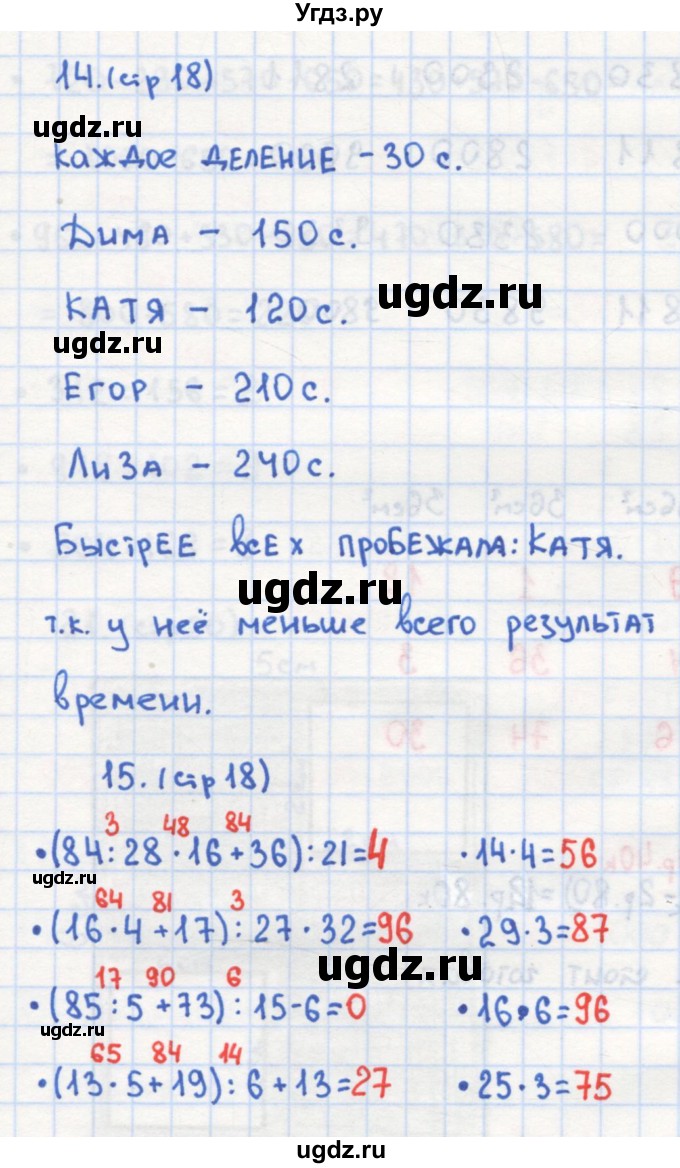 Угдз.ру
14. (стр 18)
ugdz.ru
каждое деление - 30 с.
Дима - 150 с.
ugdz.ru
Катя - 120 с.
ugdz.ru
Егор - 210 с.
Лиза - 240 с.
Быстрее всех пробежала: Катя.
ugdz.ru
т.к. у неё меньше всего результат
времени.
15. (стр 18)
3 48 84
•(84:28·16+36):21=4 •14·4=56
ugdz.ru
64 81 3
•(16·4+17):27·32=96 •29·3=87
ugdz.ru
17 90 6
•(85:5+73):15-6=0 •16·6=96
ugdz.ru
65 84 14
•(13·5+19):6+13=27 •25·3=75
ugdz.ru